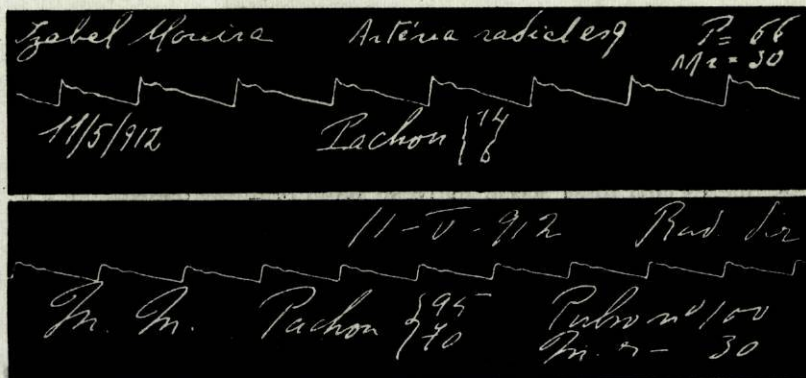 Izabel Moreira Artéria radial esq P= 66
Mr = 30
11/5/912 Pachon { 14
6
11-V-912 Rad. dir
M. M. Pachon { 95 Pulso nº 100
70 M. r - 30